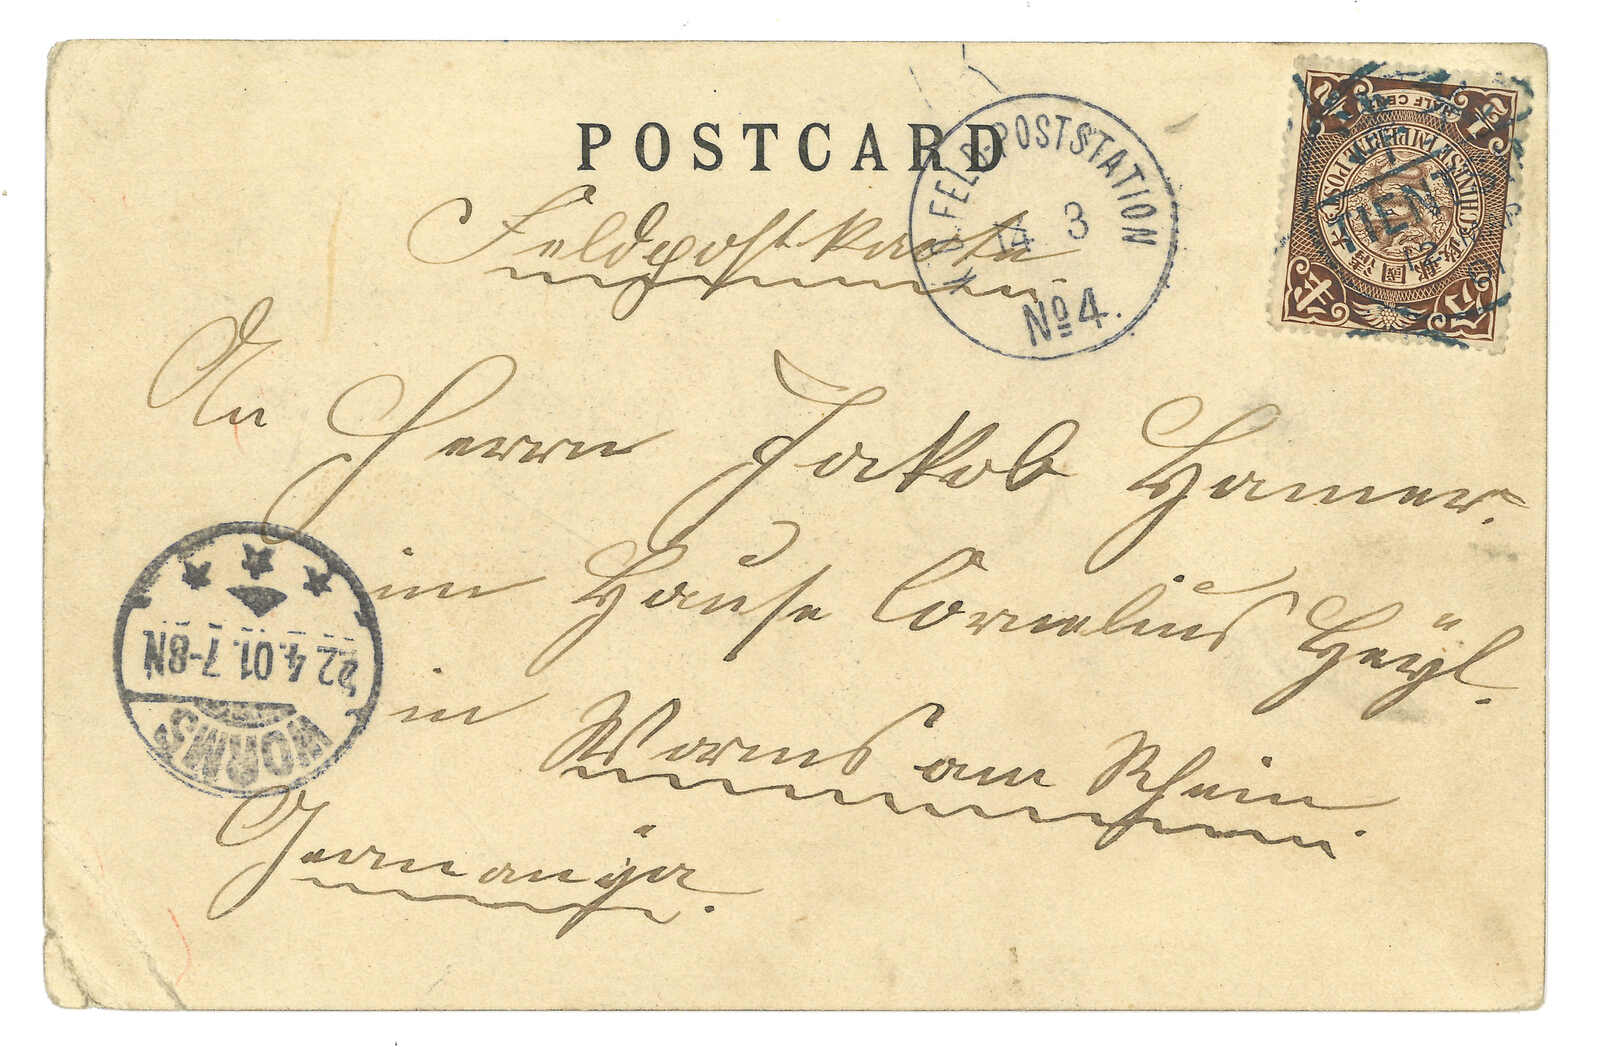 POSTCARD
K.D. FELD-POSTSTATION
14 3
No 4.
HALF CENT
CHINESE IMPERIAL POST
大清國郵政
1/2
IEN
Feldpostkarte
An
Herrn Jakob Hamer.
im Hause Cornelius Heÿl.
in Worms am Rhein
Germanÿa.
WORMS
22.4.01.7-8N